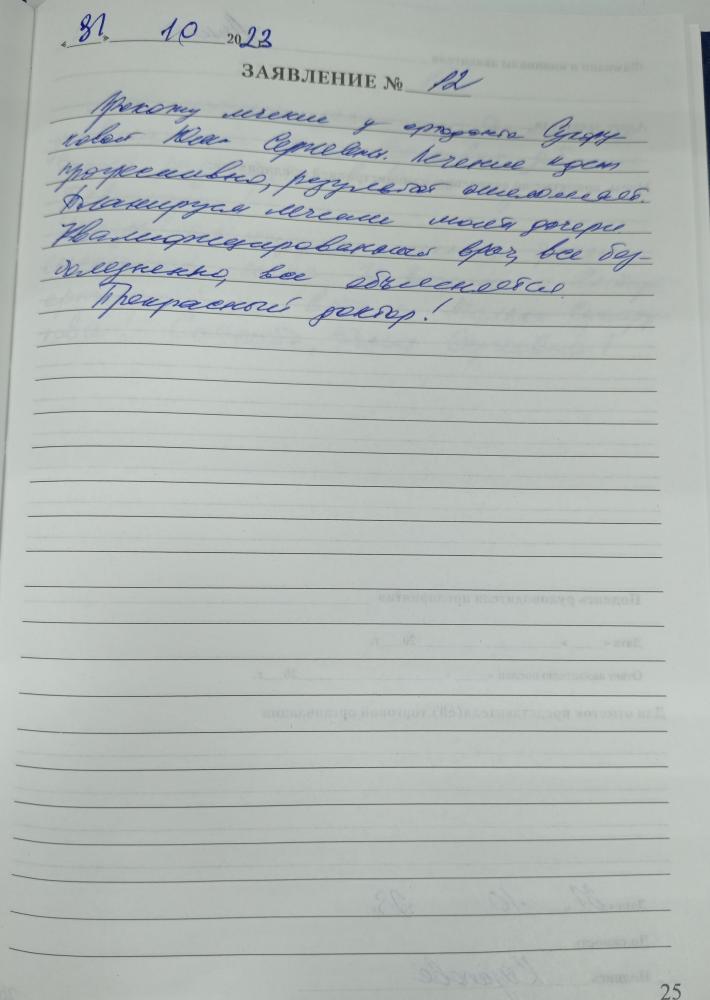 «31» 10 2023
ЗАЯВЛЕНИЕ № 12
Прохожу лечение у ортодонта Сухору
ковой Юлии Сергеевны. Лечение идет
прогрессивно, результат ошеломляет.
Планируем лечение моей дочери
Квалифицированный врач, все без-
болезненно, все объясняется.
Прекрасный доктор!
25